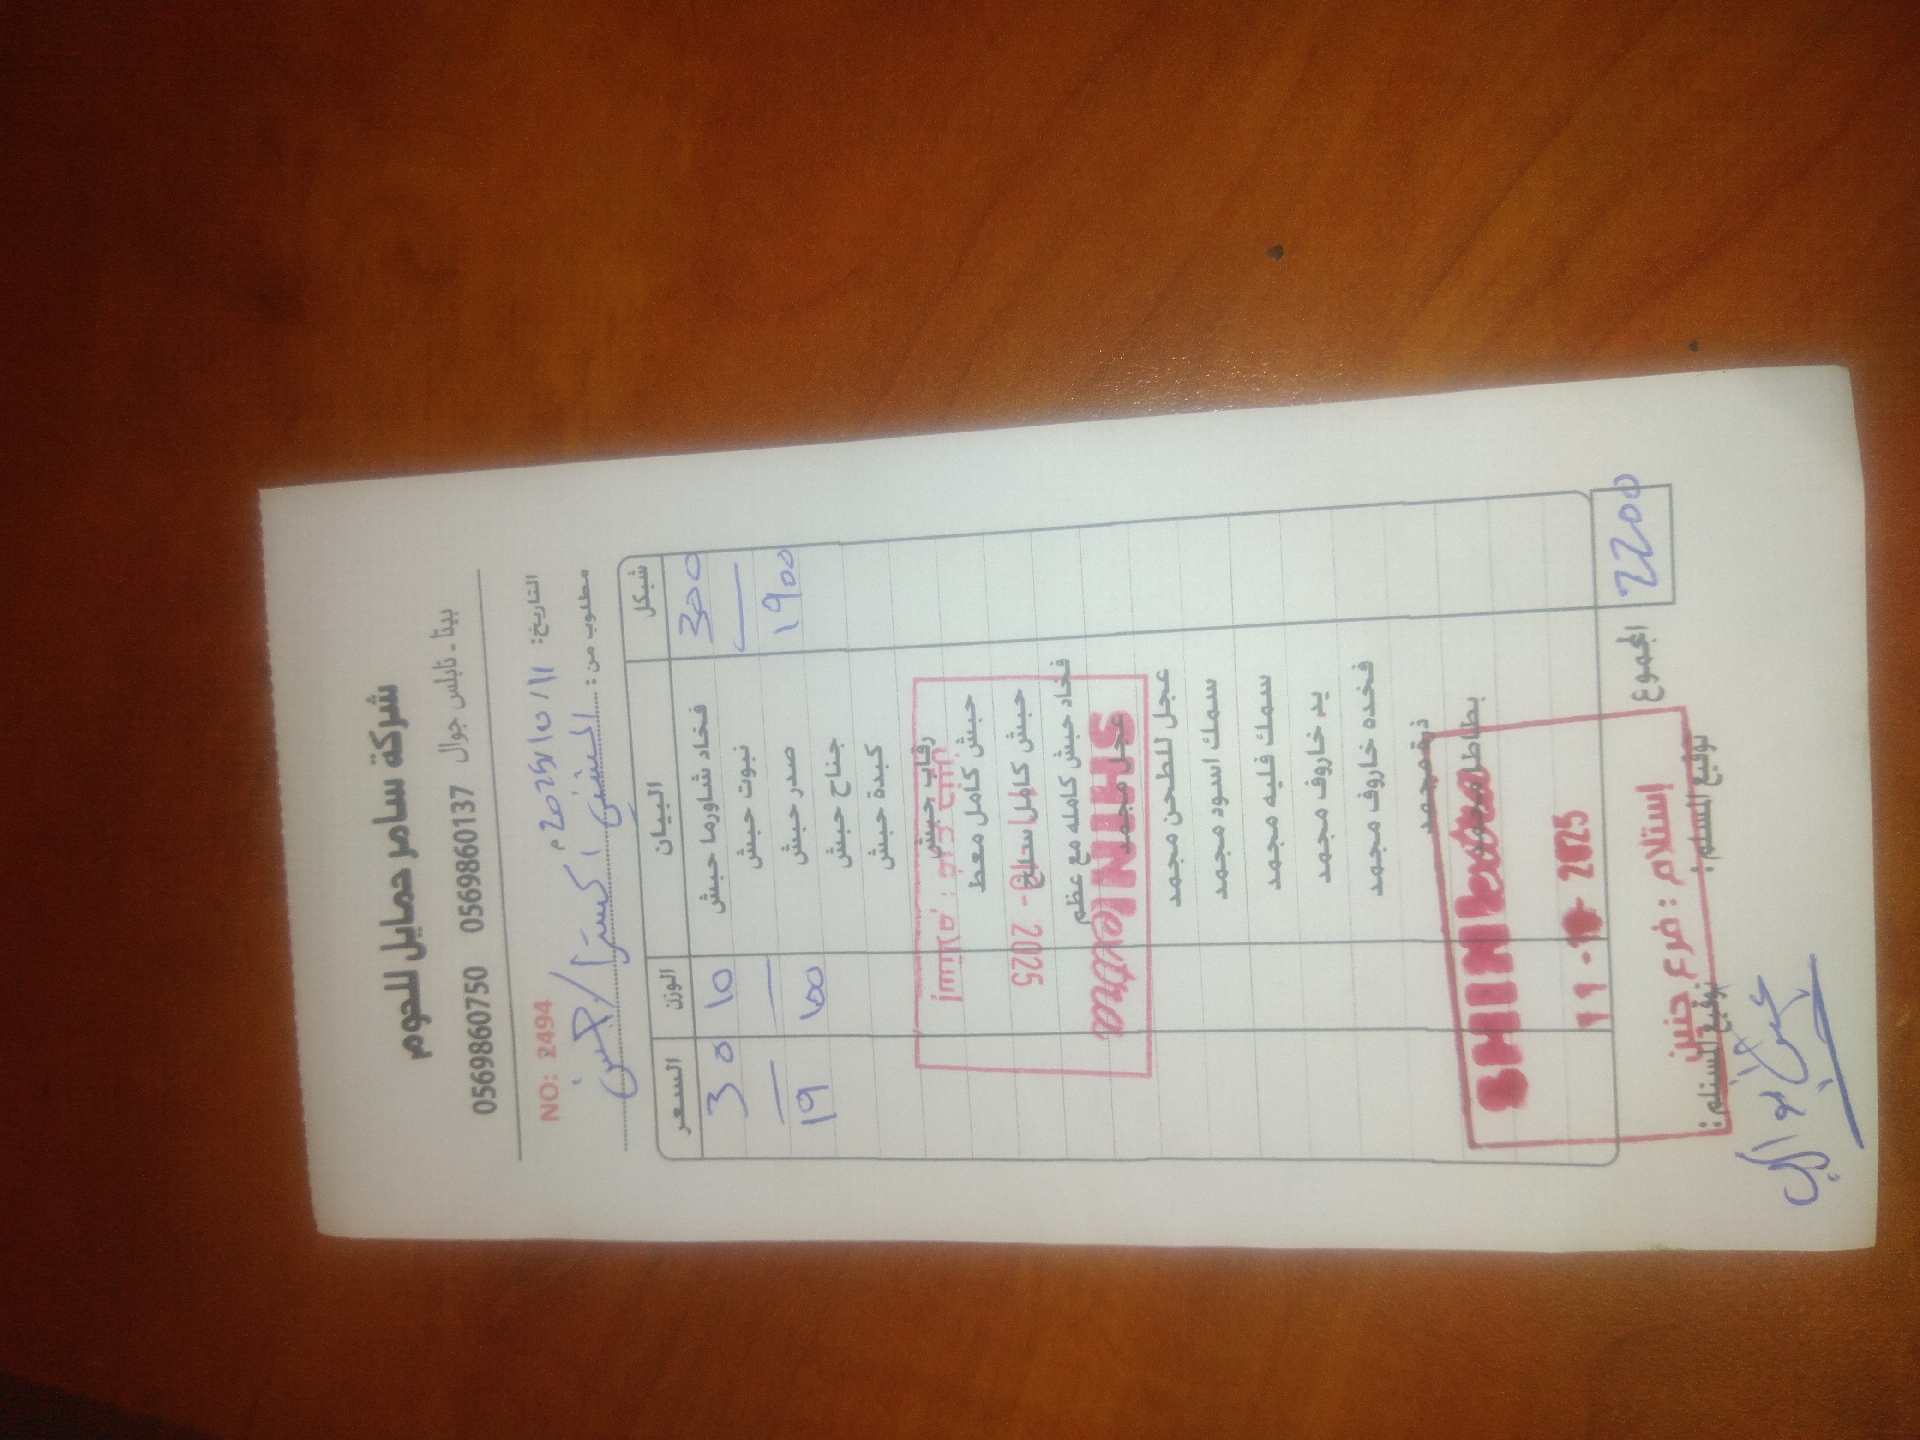 شركة سامر حمايل للحوم
بيتا - نابلس جوال 0569860137 0569860750
التاريخ: 11/10/2025م NO: 2494
مطلوب من: الشني اكسترا / جنين
السعر الوزن البيان شيكل
30 10 فخاد شاورما حبش 300
نبوت حبش
19 100 صدر حبش 1900
جناح حبش
كبدة حبش
رقاب حبش
حبش كامل معط
حبش كامل سلخ
فخاد حبش كامله مع عظم
عجل مجمد
عجل للطحن مجمد
سمك اسود مجمد
سمك فليه مجمد
يد خاروف مجمد
فخده خاروف مجمد
المجموع 2200
إستلام : فرع جنين
2025
SHINIextra
SHINIextra
11 - 10 - 2025
إستلام : فرع جنين
توقيع المستلم: توقيع المسلم: